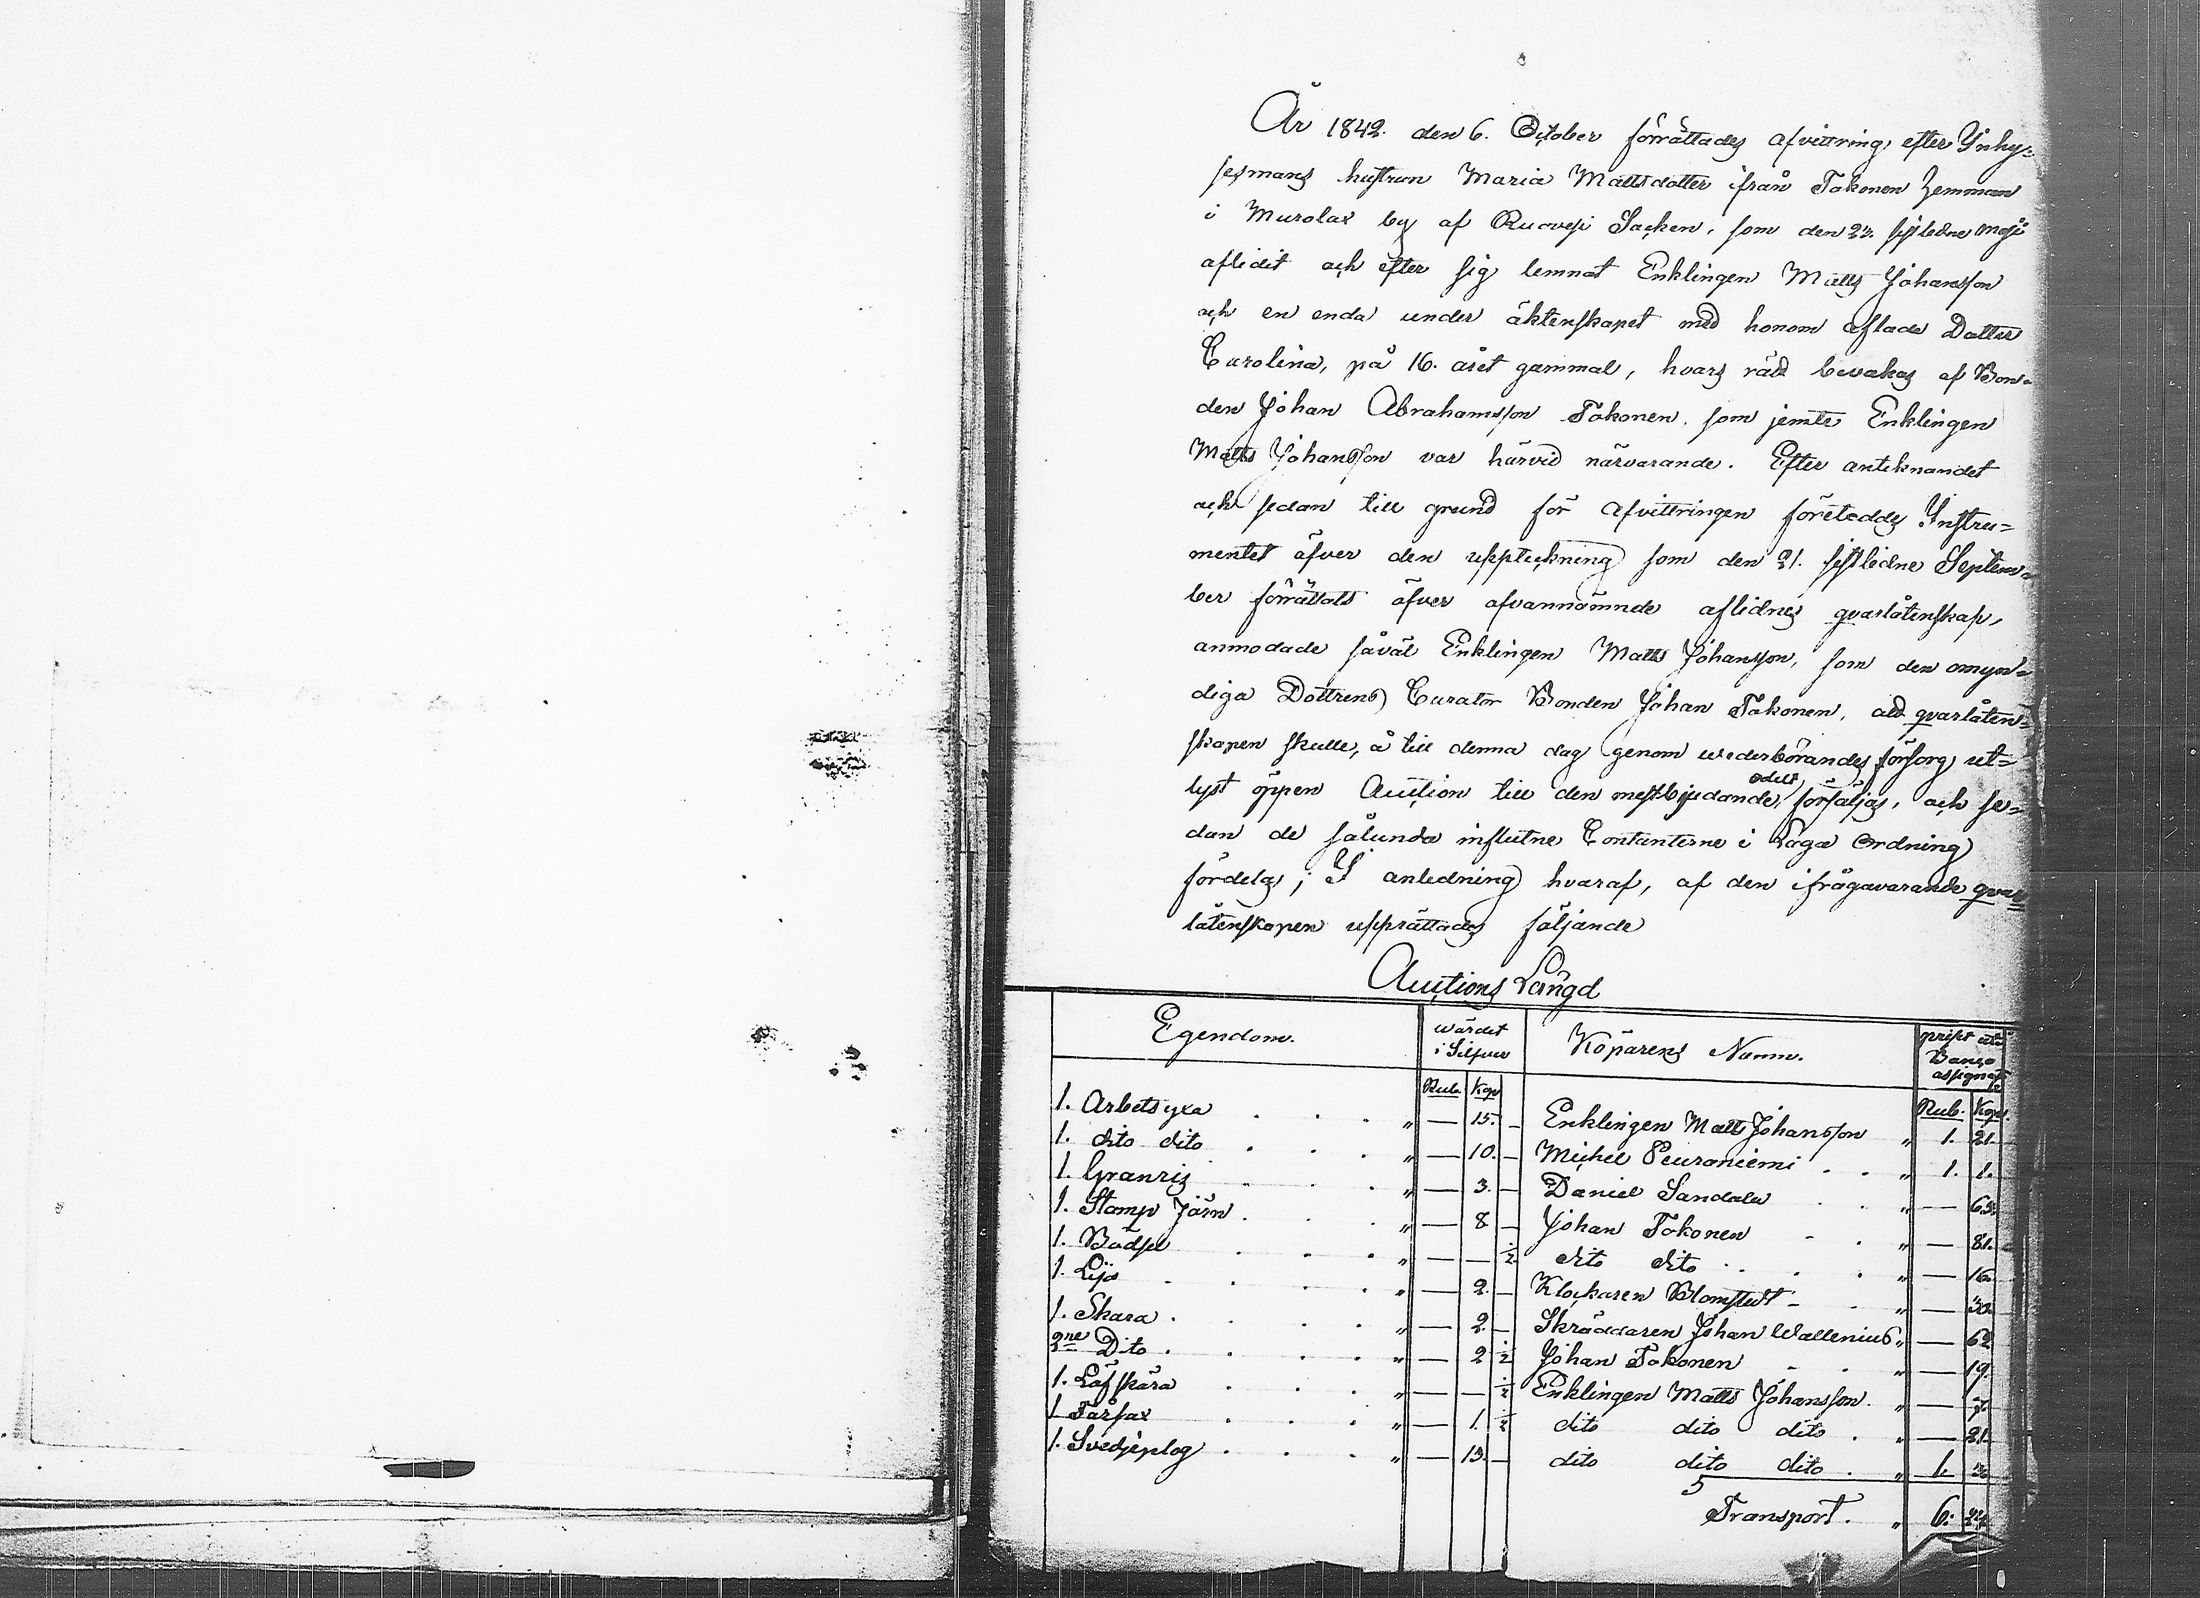 År 1842. den 6. October förrättades afvittring, efter Inhy=
sesmans hustrun Maria Mattsdotter ifrån Tokonen hemman
i Murolax by af Ruovesi Sacken, som den 22. sistledne Maji
aflidit och efter sig lemnat Enklingen Matts Johansson
och en enda under äktenskapet med honom aflade Dotter
Carolina, på 16. året gammal, hvars rätt bevakas af Bon=
den Johan Abrahamsson Tokonen, som jemte Enklingen
Matts Johansson var härvid närvarande. Efter anteknandet
och sedan till grund för afvittringen företeddes Instru=
mentet öfver den uppteckning som den 21. sistledne Septem=
ber förrättats öfver ofvannämnde aflidnes qvarlåtenskap,
anmodade såväl Enklingen Matts Johansson, som den omyn=
diga Dottrens Curator Bonden Johan Tokonen, att qvarlåten=
skapen skulle, å till denna dag genom wederbörandes försorg ut=
lyst öppen Auction till den mestbjudande odelt försäljas, och se=
dan de sålunda influtne Contanterne i Laga Ordning
fördelas; I anledning hvaraf, af den ifrågavarande qvar=
låtenskapen upprättades följande
Auctions Längd
Egendom. wärdet i Silfver Köparens Namn. prist uti Banco assignat
Rub. Kop. Rub. Kop.
1. Arbetsyxa . . . " — 15. — Enklingen Matts Johansson " 1. 21.
1. dito dito . . . " — 10. — Michel Peuraniemi . . " 1. 1.
1. Granris . . . " — 3. — Daniel Sandala . . " — 63.
1. Stamp Järn . . . " — 8 — Johan Tokonen . . " — 81.
1. Bödsel . . . " — — ½ dito dito . . . " — 16.
1. Lija . . . . " — 2. — Klockaren Blomstedt . " — 30.
1. Skara . . . . " — 2. — Skräddaren Johan Wallenius " — 62.
2ne Dito . . . . " — 2 ½ Johan Tokonen . . . " — 19.
1. Löfskära . . . " — — ½ Enklingen Matts Johansson. " — 7.
1 Fårsax . . . " — 1. ½ dito dito dito . " — 21.
1. Svedjeplog . . . " — 13. — dito dito dito . " 1.
Transport. " 6.